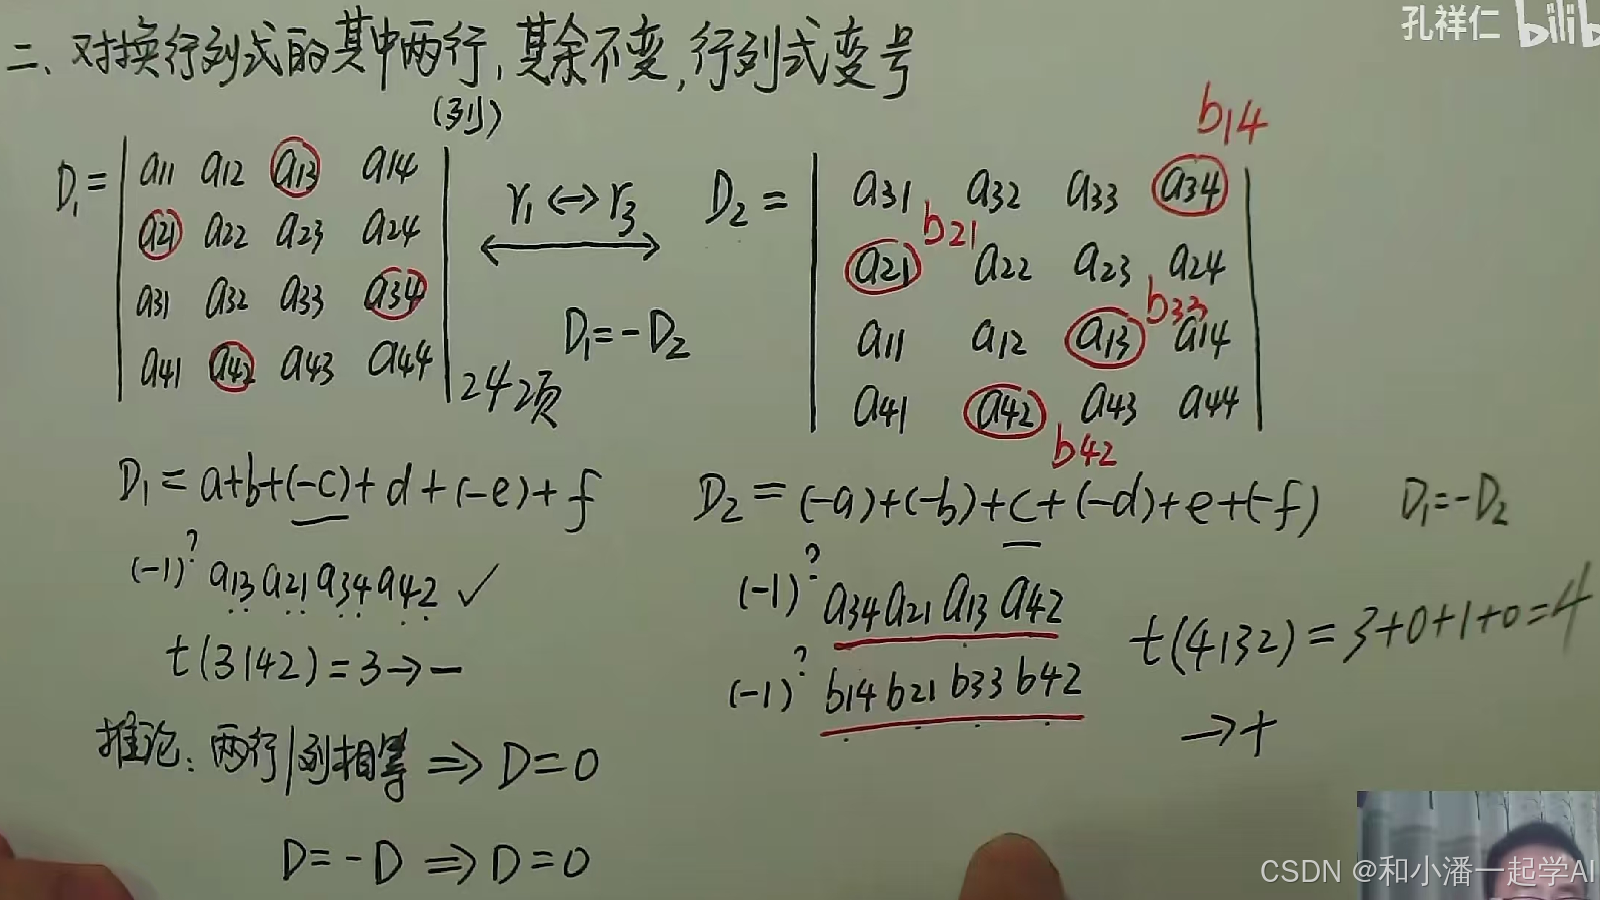 孔祥仁 bilib
二、对换行列式的其中两行,其余不变,行列式变号
(列)
D₁= | a11 a12 a13 a14 |
| a21 a22 a23 a24 |
| a31 a32 a33 a34 |
| a41 a42 a43 a44 |
24项
r₁ ↔ r₃
D₁=-D₂
b14
D₂ = | a31 a32 a33 a34 |
b21
| a21 a22 a23 a24 |
b33
| a11 a12 a13 a14 |
| a41 a42 a43 a44 |
b42
D₁ = a+b+(-c)+d+(-e)+f
(-1)^? a13 a21 a34 a42 ✓
t(3142)=3→−
D₂ = (-a)+(-b)+c+(-d)+e+(-f) D₁=-D₂
(-1)^? a34 a21 a13 a42
(-1)^? b14 b21 b33 b42
t(4132)=3+0+1+0=4
→+
推论:两行/列相等 ⇒ D=0
D=-D ⇒ D=0
CSDN @和小潘一起学AI